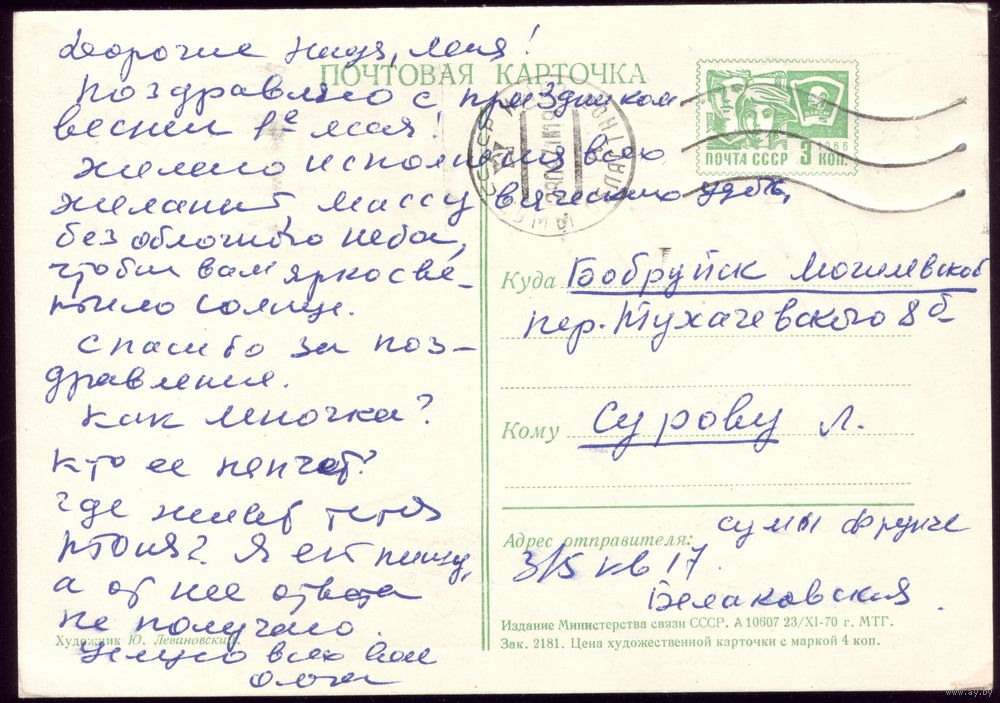 Дорогие Надя, Леня!
ПОЧТОВАЯ КАРТОЧКА
Поздравляю с праздником
весны 1е мая!
Желаю исполнения всех
желаний, массу всяческих удач,
безоблачного неба,
чтобы вам ярко све-
тило солнце.
Спасибо за поз-
дравление.
Как Леночка?
Кто ее нянчет?
Где живет тетя
Тоня? Я ей пишу,
а от нее ответа
не получаю.
Целую всех вас
Оля
Художник Ю. Левиновский.
ПОЧТА СССР 3 КОП.
1966
ВЛКСМ
СУМИ
Куда Бобруйск Могилевской
пер. Тухачевского 8б
Кому Сурову Л.
Адрес отправителя: Сумы Фрунзе
3/5 кв 17
Белаковская.
Издание Министерства связи СССР. А 10607 23/XI-70 г. МТГ.
Зак. 2181. Цена художественной карточки с маркой 4 коп.
www.ay.by